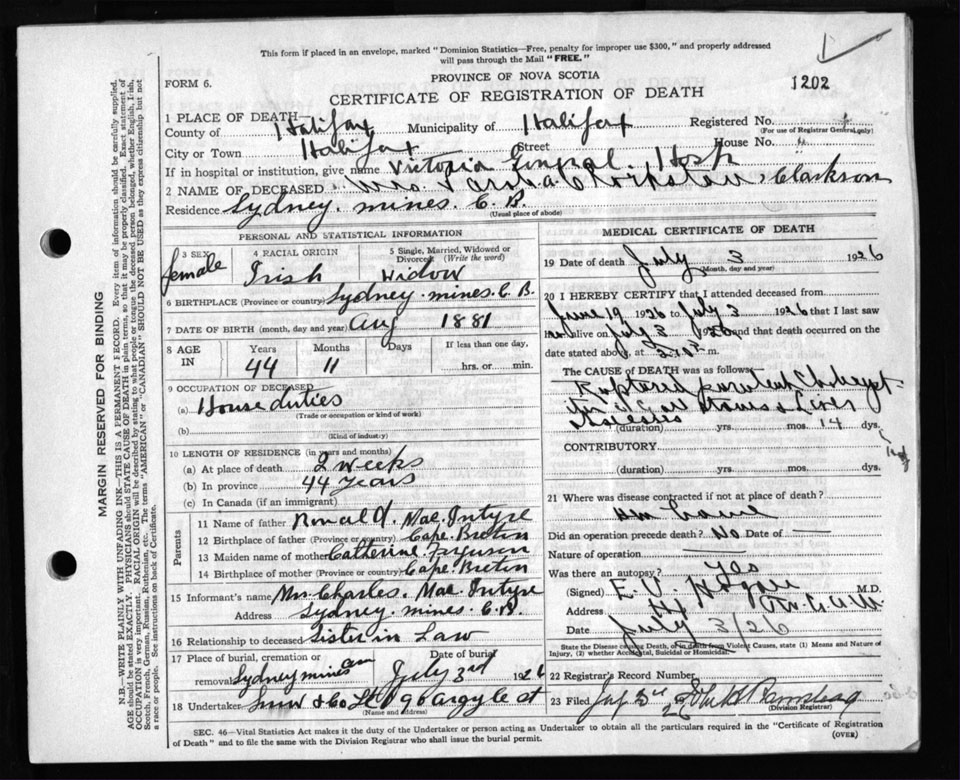 This form if placed in an envelope, marked "Dominion Statistics—Free, penalty for improper use $300," and properly addressed
will pass through the Mail "FREE."
FORM 6.
PROVINCE OF NOVA SCOTIA
1202
CERTIFICATE OF REGISTRATION OF DEATH
1 PLACE OF DEATH—
County of Halifax Municipality of Halifax Registered No.
(For use of Registrar General only)
City or Town Halifax Street House No.
If in hospital or institution, give name Victoria Hosp
2 NAME OF DECEASED Mrs. Clarkson
Residence Sydney. mines. C. B.
(Usual place of abode)
PERSONAL AND STATISTICAL INFORMATION
3 SEX female
4 RACIAL ORIGIN Irish
5 Single, Married, Widowed or Divorced (Write the word) Widow
6 BIRTHPLACE (Province or country) Sydney. mines. C. B.
7 DATE OF BIRTH (month, day and year) Aug 1881
8 AGE IN Years 44 Months 11 Days If less than one day, hrs. or min.
9 OCCUPATION OF DECEASED
(a) House duties
(Trade or occupation or kind of work)
(b)
(Kind of industry)
10 LENGTH OF RESIDENCE (in years and months)
(a) At place of death 2 weeks
(b) In province 44 Years
(c) In Canada (if an immigrant)
Parents
11 Name of father Ronald Mac. Intyre
12 Birthplace of father (Province or country) Cape. Breton
13 Maiden name of mother Catherine. Ferguson
14 Birthplace of mother (Province or country) Cape. Breton
15 Informant's name Mrs. Charles. Mac. Intyre
Address Sydney. mines. C. B.
16 Relationship to deceased Sister in Law
17 Place of burial, cremation or removal Sydney mines
Date of burial July 3rd 1926
18 Undertaker Snow & Co Ltd 90 Argyle st
(Name and address)
MEDICAL CERTIFICATE OF DEATH
19 Date of death July 3 1926
(Month, day and year)
20 I HEREBY CERTIFY that I attended deceased from
June 19 1926 to July 3 1926 that I last saw
alive on July 3 1926 and that death occurred on the
date stated above, at m.
The CAUSE OF DEATH was as follows:
Ruptured
Stones & Liver
(duration) yrs. mos. 14 dys.
CONTRIBUTORY
(duration) yrs. mos. dys.
21 Where was disease contracted if not at place of death?
Did an operation precede death? No Date of —
Nature of operation
Was there an autopsy? Yes
(Signed) E. V. Hogan M.D.
Address Hfx
Date July 3/26
State the Disease causing Death, or in death from Violent Causes, state (1) Means and Nature of
Injury, (2) whether Accidental, Suicidal or Homicidal.
22 Registrar's Record Number
23 Filed
(Division Registrar)
SEC. 46—Vital Statistics Act makes it the duty of the Undertaker or person acting as Undertaker to obtain all the particulars required in the "Certificate of Registration
of Death" and to file the same with the Division Registrar who shall issue the burial permit.
(OVER)
MARGIN RESERVED FOR BINDING
N.B.—WRITE PLAINLY WITH UNFADING INK—THIS IS A PERMANENT RECORD. Every item of information should be carefully supplied.
AGE should be stated EXACTLY. PHYSICIANS should STATE CAUSE OF DEATH in plain terms, so that it may be properly classified. Exact statement of
OCCUPATION is very important. RACIAL ORIGIN will be described by stating to what people or tongue the deceased person belonged, whether English, Irish,
Scotch, French, German, Russian, Ruthenian, etc. The terms "AMERICAN" or "CANADIAN" SHOULD NOT BE USED as they express citizenship but not
a race or people. See instructions on back of Certificate.